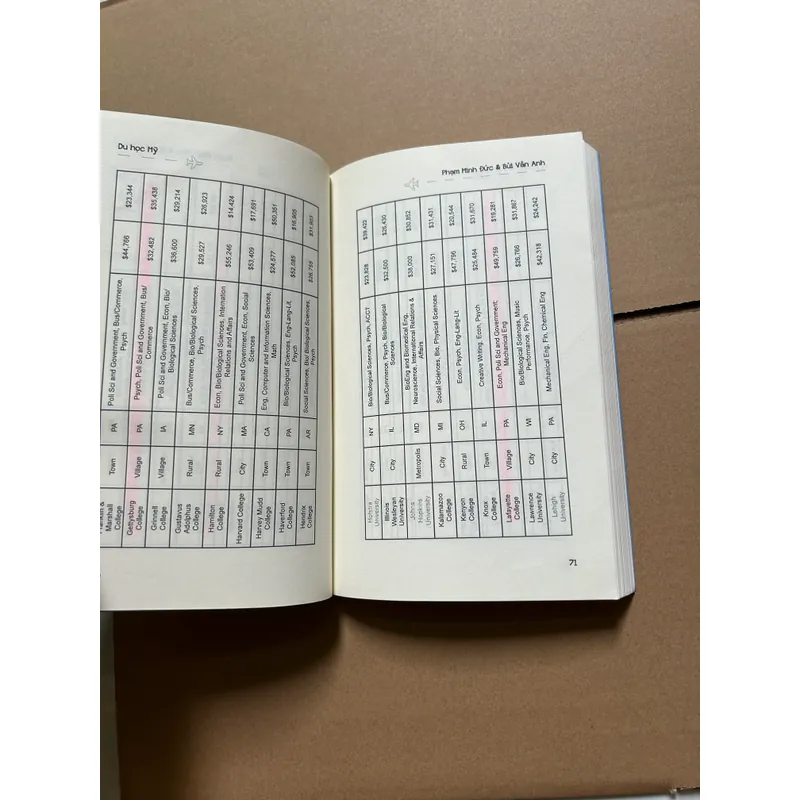 Du học Mỹ
Marshall College
Town
PA
Poli Sci and Government, Bus/Commerce,
Psych
$44,766
$23,344
Gettysburg
College
Village
PA
Psych, Poli Sci and Government, Bus/
Commerce
$32,482
$35,438
Grinnell
College
Village
IA
Poli Sci and Government, Econ, Bio/
Biological Sciences
$36,600
$29,214
Gustavus
Adolphus
College
Rural
MN
Bus/Commerce, Bio/Biological Sciences,
Psych
$29,527
$26,923
Hamilton
College
Rural
NY
Econ, Bio/Biological Sciences, Internation
Relations and Affairs
$55,246
$14,424
Harvard College
City
MA
Poli Sci and Government, Econ, Social
Sciences
$53,409
$17,691
Harvey Mudd
College
Town
CA
Eng, Computer and Information Sciences,
Math
$24,577
$50,351
Haverford
College
Town
PA
Bio/Biological Sciences, Eng-Lang-Lit,
Psych
$52,085
Hendrix
College
Town
AR
Social Sciences, Bio/ Biological Sciences,
Psych
Phạm Minh Đức & Bùi Vân Anh
Hofstra
University
City
NY
Bio/Biological Sciences, Psych, ACCT
$23,828
$39,422
Illinois
Wesleyan
University
City
IL
Bus/Commerce, Psych, Bio/Biological
Sciences
$32,500
$26,430
Johns
Hopkins
University
Metropolis
MD
BioEng and Biomedical Eng,
Neuroscience, International Relations &
Affairs
$38,000
$30,852
Kalamazoo
College
City
MI
Social Sciences, Bio, Physical Sciences
$27,151
$31,431
Kenyon
College
Rural
OH
Econ, Psych, Eng-Lang-Lit
$47,796
$20,544
Knox
College
Town
IL
Creative Writing, Econ, Psych
$25,484
$31,670
Lafayette
College
Village
PA
Econ, Poli Sci and Government,
Mechanical Eng
$49,759
$19,281
Lawrence
University
City
WI
Bio/Biological Sciences, Music
Performance, Psych
$26,766
$31,867
Lehigh
University
City
PA
Mechanical Eng, Fin, Chemical Eng
$42,318
$24,242
71